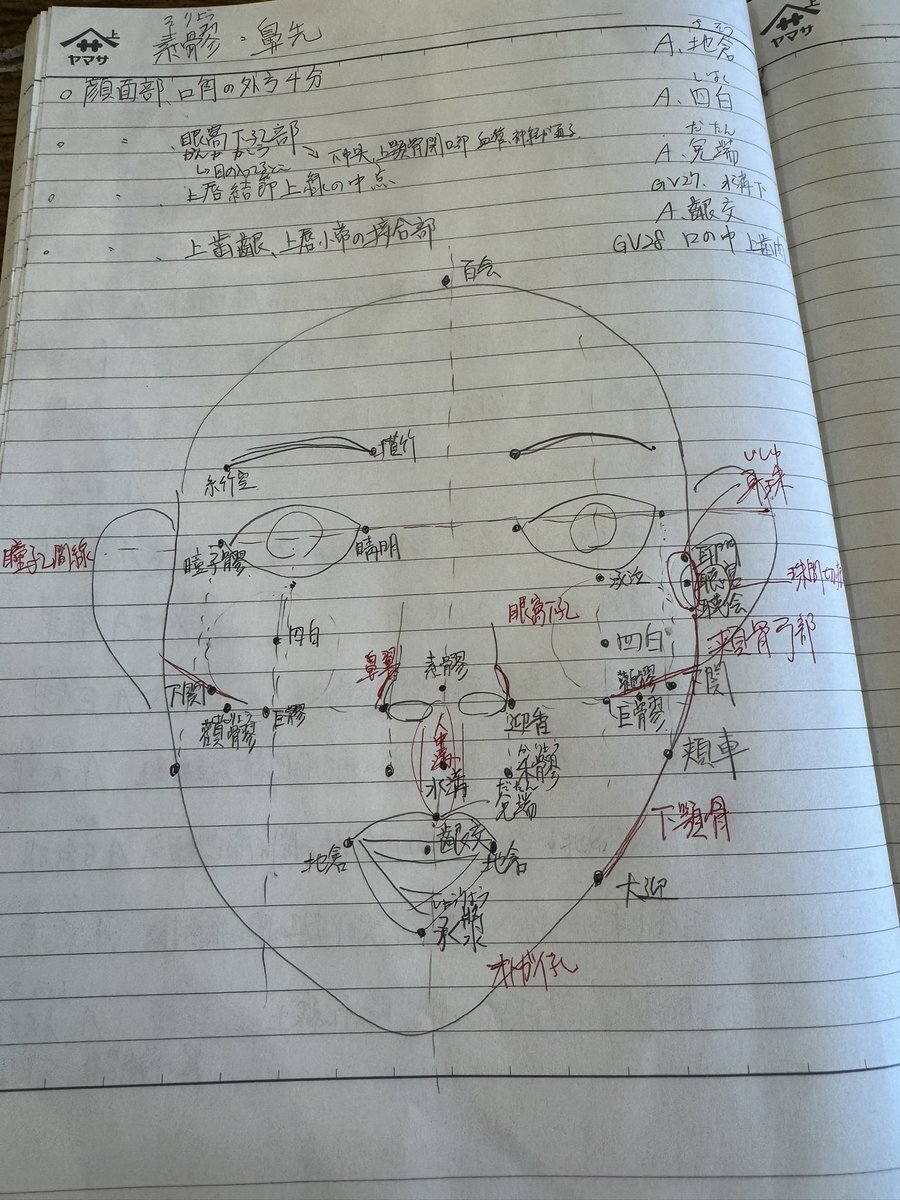 上
ヤマサ
そりょう
素髎 = 鼻先
ちそう
A. 地倉
○ 顔面部、口角の外方4分
しはく
A. 四白
〃 〃 、眼窩下孔部
がんか かこう
だたん
A. 兌端
〃 〃 、上唇結節上縁の中点
GV27. 水溝下
A. 齦交
〃 〃 、上歯齦、上唇小帯の接合部
GV28 口の中 上歯肉
百会
攅竹
糸竹空
じしゅ
耳珠
瞳孔間線
瞳子髎
睛明
承泣
耳門
聴宮
聴会
眼窩下孔
四白
四白
頬骨弓部
鼻翼
素髎
下関
顴髎
下関
りょう
顴髎
巨髎
巨髎
迎香
人中溝
水溝
かりょう
禾髎
だたん
兌端
頬車
下顎骨
地倉
齦交
地倉
大迎
承漿
オトガイ孔